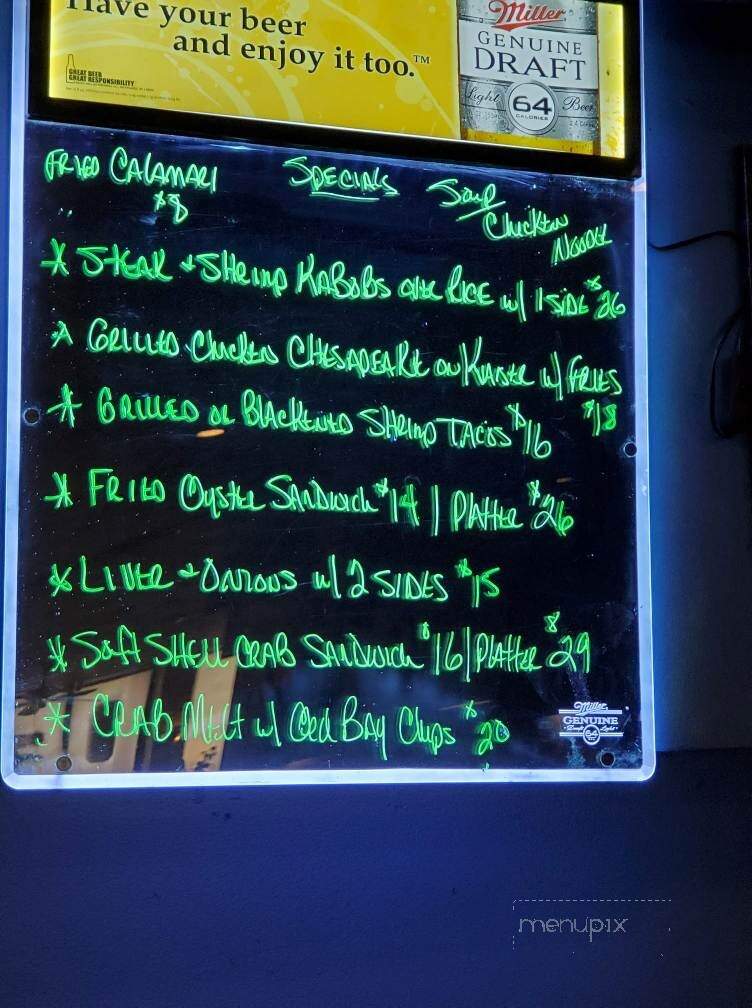 Have your beer
and enjoy it too.™
GREAT BEER
GREAT RESPONSIBILITY
Miller
GENUINE
DRAFT
Light 64 Beer
CALORIES
FRIED CALAMARI
$8
SPECIALS
Soup
Chicken
Noodle
* STEAK + SHRIMP KABOBS OVER RICE w/ 1 SIDE $26
* GRILLED CHICKEN CHESAPEAKE ON KAISER w/ FRIES
$18
* GRILLED OR BLACKENED SHRIMP TACOS $16
* FRIED OYSTER SANDWICH $14 | PLATTER $26
* LIVER + ONIONS w/ 2 SIDES $15
* SOFT SHELL CRAB SANDWICH $16 | PLATTER $29
* CRAB MELT w/ OLD BAY CHIPS $20
Miller
GENUINE
Draft Light
64
menupix